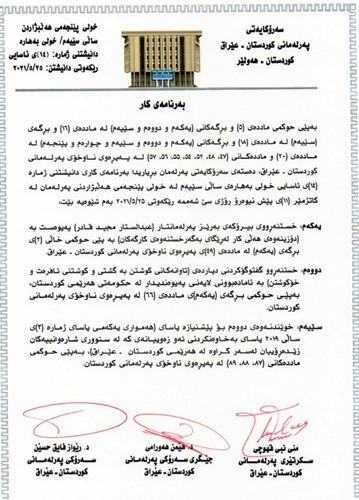 سەرۆکایەتی
پەرلەمانی کوردستان - عێراق
کوردستان - هەولێر
خولی پێنجەمی هەڵبژاردن
ساڵی سێیەم/ خولی بەهارە
دانیشتنی ژمارە: (١٤)ی ئاسایی
رێکەوتی دانیشتن: ٢٠٢١/٥/٢٥
بەرنامەی کار
بەپێی حوکمی ماددەی (٥) و بڕگەکانی (یەکەم و دووەم و سێیەم) لە ماددەی (١٦) و بڕگەی
(سێیەم) لە ماددەی (١٨) و بڕگەکانی (یەکەم و دووەم و سێیەم و چوارەم و پێنجەم) لە
ماددەی (٢٠) و ماددەکانی (٤٧، ٤٨، ٥٢، ٥٤، ٥٥، ٥٦، ٥٧) لە پەیڕەوی ناوخۆی پەرلەمانی
کوردستان - عێراق، دەستەی سەرۆکایەتی پەرلەمان بڕیاریدا بەرنامەی کاری دانیشتنی ژمارە
(١٤)ی ئاسایی خولی بەهارەی ساڵی سێیەم لە خولی پێنجەمی هەڵبژاردنی پەرلەمان لە
کاتژمێر (١١)ی پێش نیوەڕۆ رۆژی سێ شەممە رێکەوتی ٢٠٢١/٥/٢٥ بەم شێوەیە بێت:
یەکەم: خستنەڕووی بیرۆکەی بەڕێز پەرلەمانتار (عبدالستار مجید قادر) پەیوەست بە
(دۆزینەوەی هەڵی کار لەڕێگای بەگەڕخستنەوەی کارگەکان) بە پێی حوکمی خاڵی (٢)ی
بڕگەی (یەکەم) لە ماددەی (٤٩)ی پەیڕەوی ناوخۆی پەرلەمانی کوردستان - عێراق.
دووەم: خستنەڕوو گفتوگۆکردنی دیاردەی (تاوانەکانی کوشتن بە گشتی و کوشتنی ئافرەت و
خۆکوشتن) بە ئامادەبوونی لایەنی پەیوەندیدار لە حکومەتی هەرێمی کوردستان،
بەپێی حوکمی بڕگەی (یەکەم)ی ماددەی (٦٦) لە پەیڕەوی ناوخۆی پەرلەمانی
کوردستان.
سێیەم: خوێندنەوەی دووەم بۆ پێشنیازە یاسای (هەمواری یەکەمی یاسای ژمارە (٢)ی
ساڵی ٢٠١٩ یاسای بەخاوەنکردنی ئەو زەوییانەی کە لە سنووری شارەوانییەکان
زێدەڕۆییان لەسەر کراوە لە هەرێمی کوردستان - عێراق)، بەپێی حوکمی
ماددەکانی (٨٧، ٨٨، ٨٩) لە پەیڕەوی ناوخۆی پەرلەمانی کوردستان.
منی نبی قهوچی
سکرتێری پەرلەمانی
کوردستان - عێراق
د. هێمن هەورامی
جێگری سەرۆکی پەرلەمانی
کوردستان - عێراق
د. رێواز فایق حسێن
سەرۆکی پەرلەمانی
کوردستان - عێراق